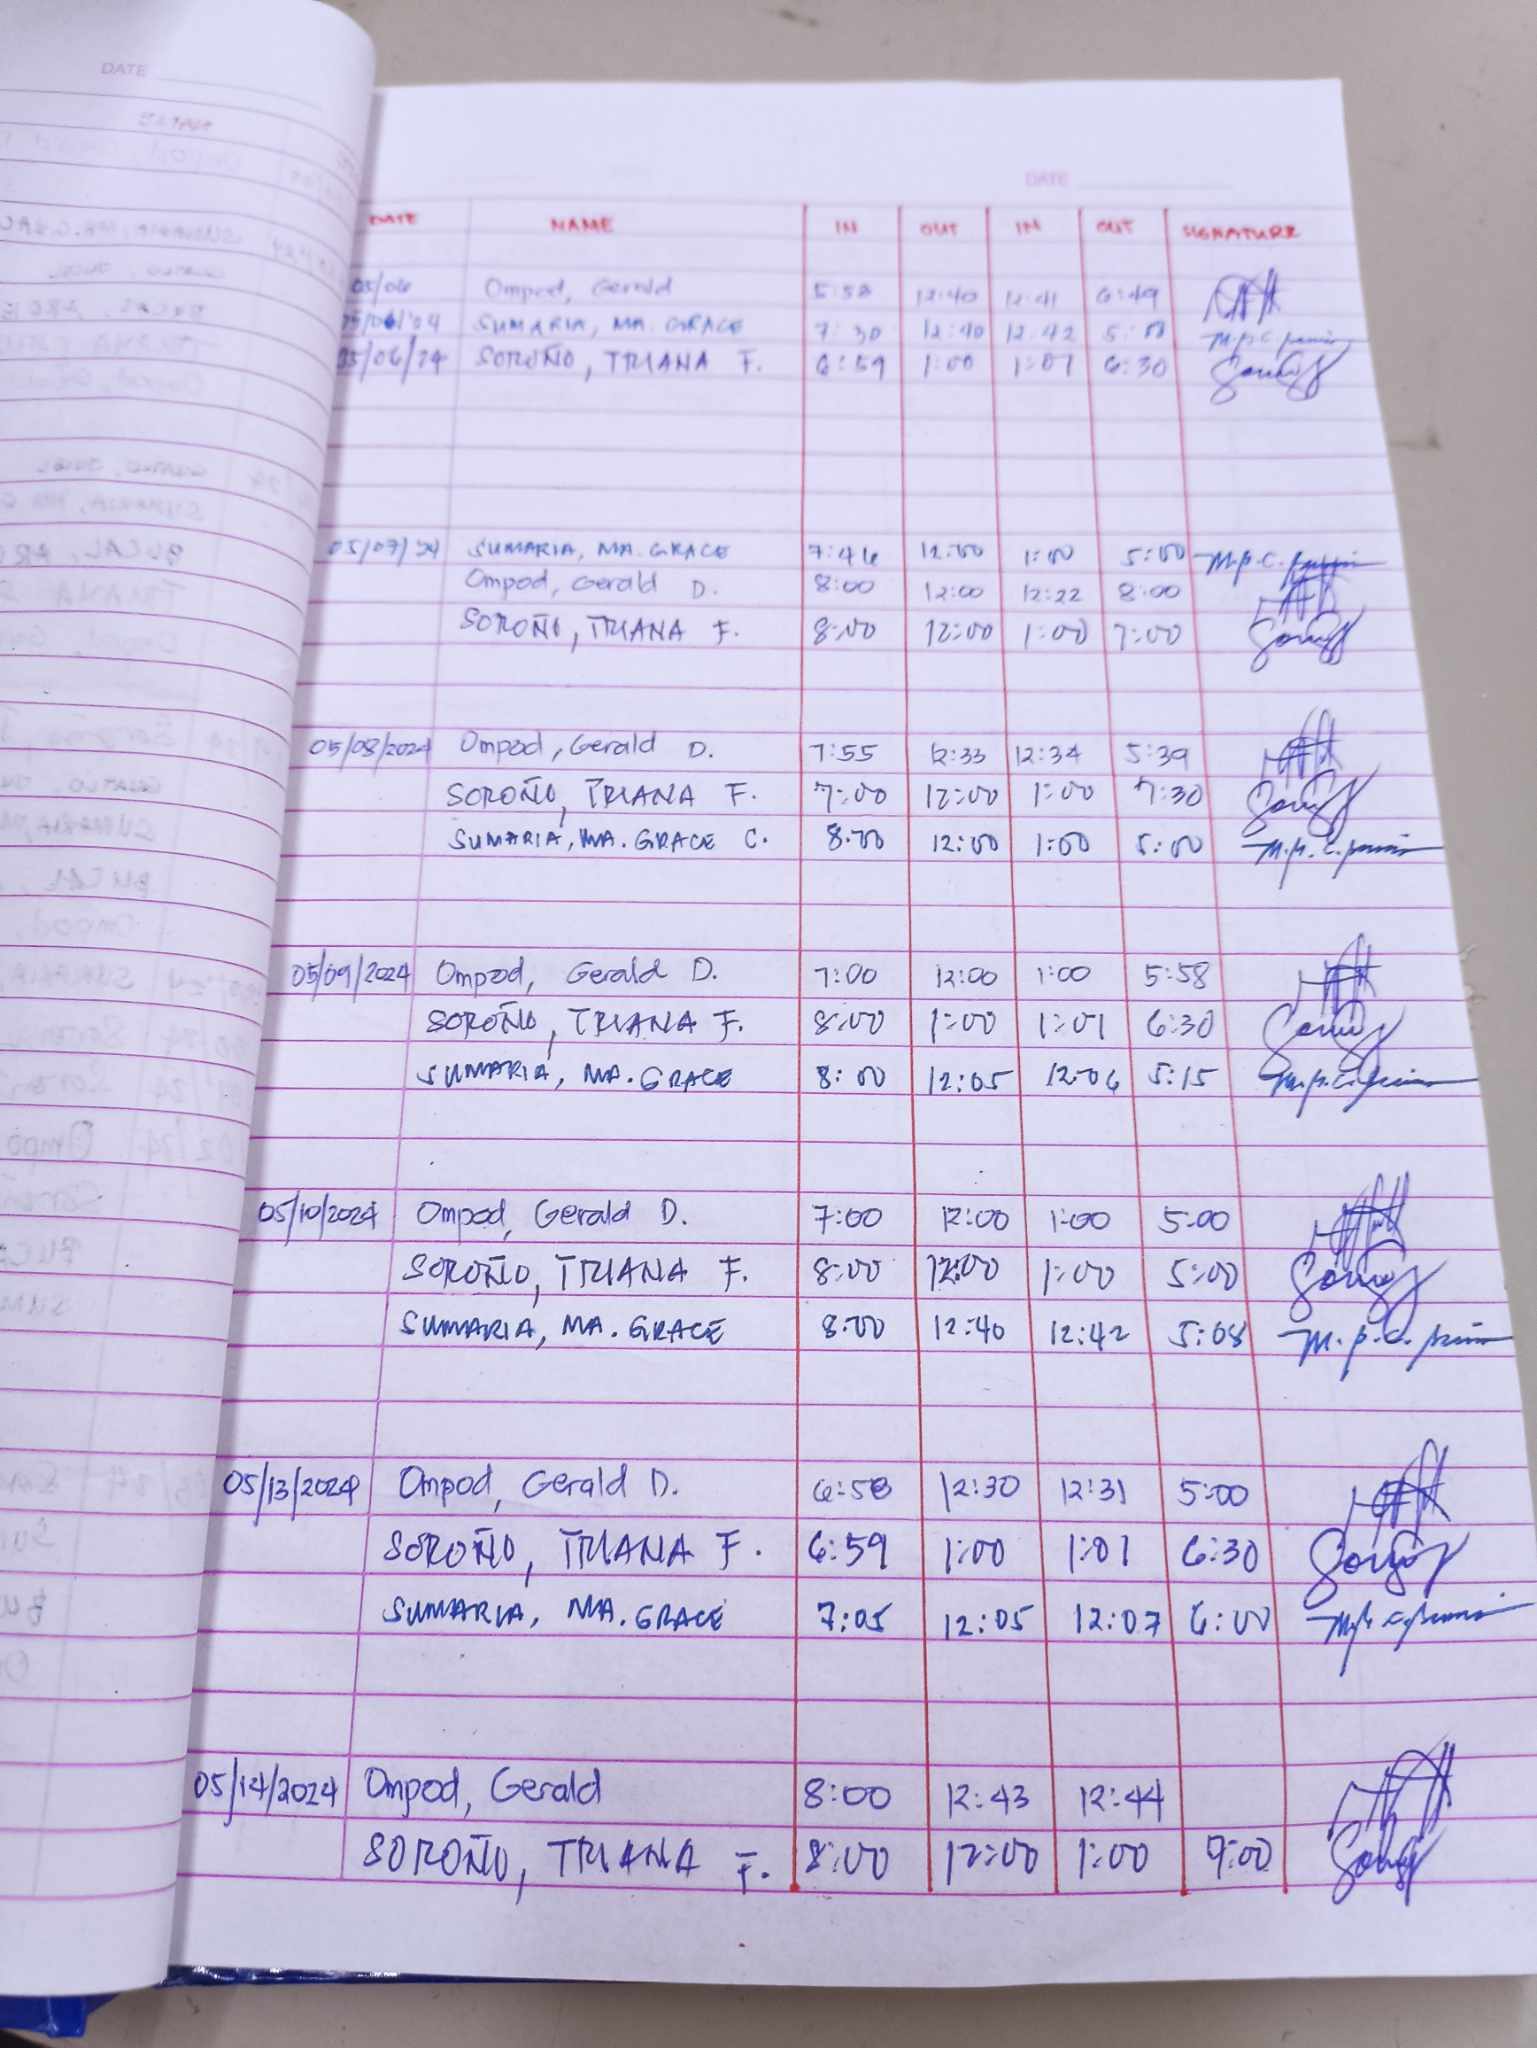 DATE
DATE
DATE NAME IN OUT IN OUT SIGNATURE
05/06 Ompod, Gerald 5:58 12:40 12:41 6:49
SUMARIA, MA. GRACE 7:30 12:40 12:42
05/06/24 SOROÑO, TRIANA F. 6:59 1:00 1:01 6:30
05/07/24 SUMARIA, MA. GRACE 7:46 12:00 1:00 5:00
Ompod, Gerald D. 8:00 12:00 12:22 8:00
SOROÑO, TRIANA F. 8:00 12:00 1:00 7:00
05/08/2024 Ompod, Gerald D. 7:55 12:33 12:34 5:39
SOROÑO, TRIANA F. 7:00 12:00 1:00 7:30
SUMARIA, MA. GRACE C. 8:00 12:00 1:00 5:00
05/09/2024 Ompod, Gerald D. 7:00 12:00 1:00 5:58
SOROÑO, TRIANA F. 8:00 1:00 1:01 6:30
SUMARIA, MA. GRACE 8:00 12:05 12:06 5:15
05/10/2024 Ompod, Gerald D. 7:00 12:00 1:00 5:00
SOROÑO, TRIANA F. 8:00 12:00 1:00 5:00
SUMARIA, MA. GRACE 8:00 12:40 12:42 5:08
05/13/2024 Ompod, Gerald D. 6:58 12:30 12:31 5:00
SOROÑO, TRIANA F. 6:59 1:00 1:01 6:30
SUMARIA, MA. GRACE 7:05 12:05 12:07 6:00
05/14/2024 Ompod, Gerald 8:00 12:43 12:44
SOROÑO, TRIANA F. 8:00 12:00 1:00 9:00